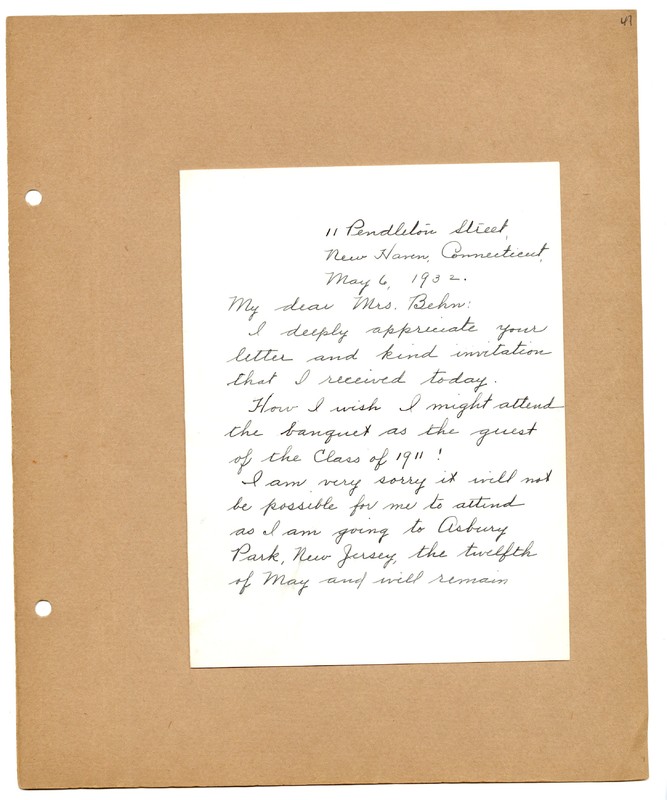 47
11 Pendleton Street,
New Haven, Connecticut,
May 6, 1932.
My dear Mrs. Behn:
I deeply appreciate your
letter and kind invitation
that I received today.
How I wish I might attend
the banquet as the guest
of the Class of 1911!
I am very sorry it will not
be possible for me to attend
as I am going to Asbury
Park, New Jersey, the twelfth
of May and will remain